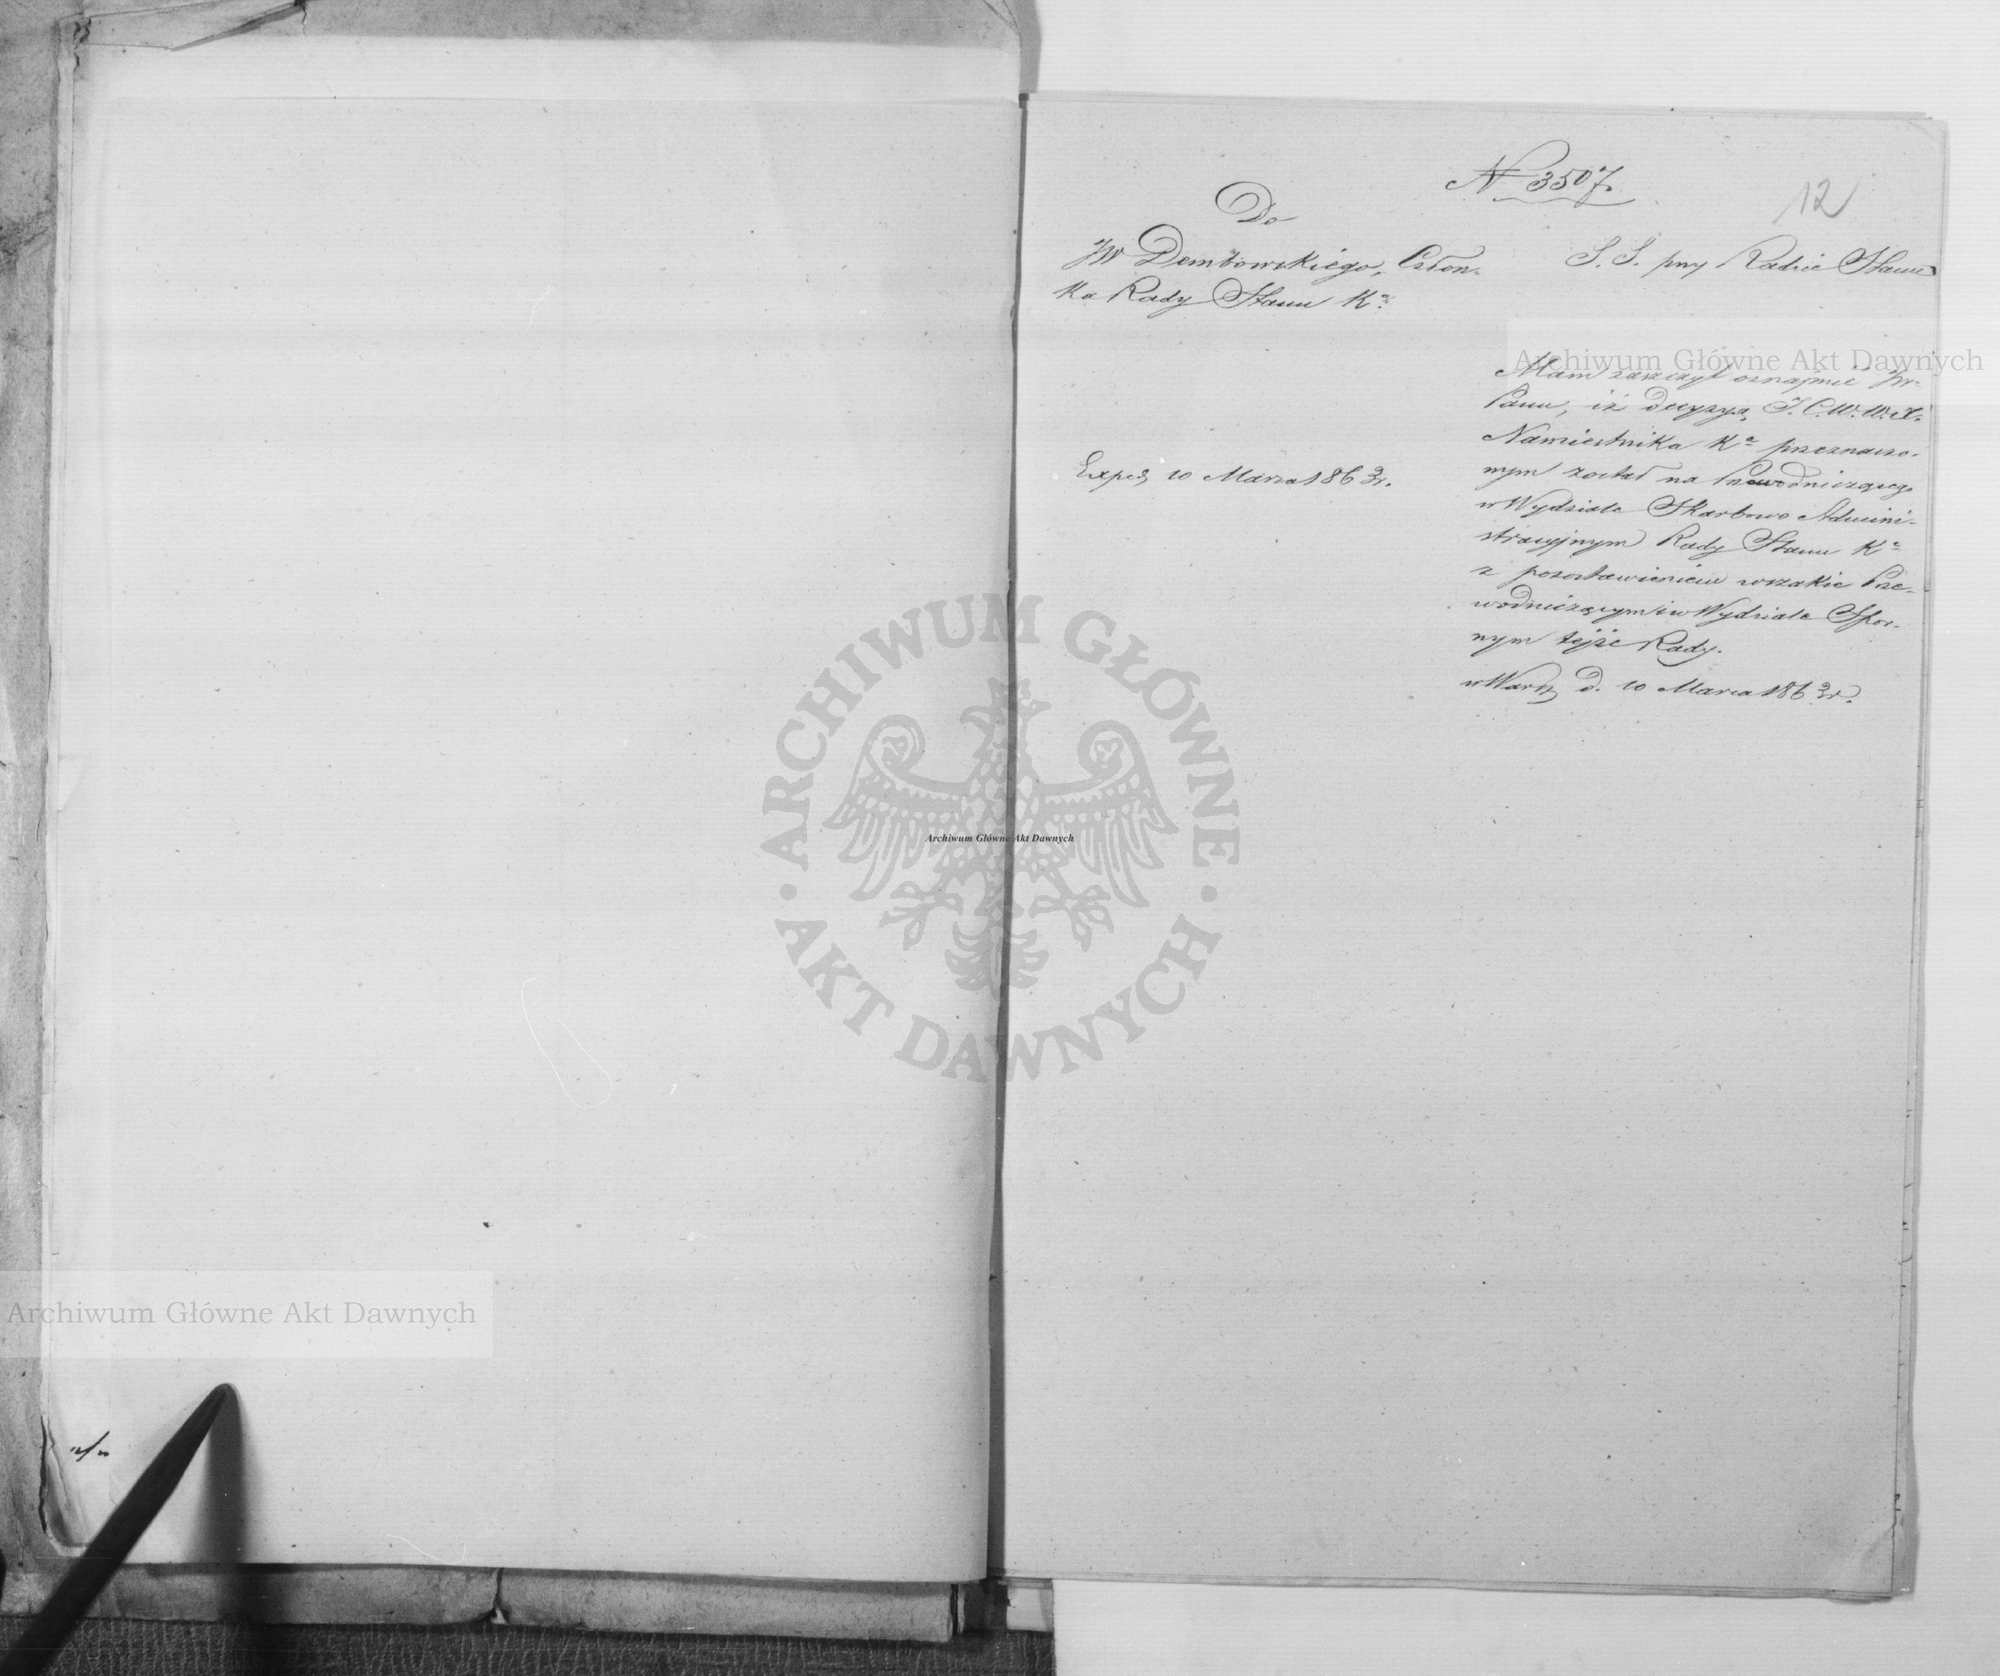 N 3507.
12
Do
JW Dembowskiego, Człon-
ka Rady Stanu Kა
S. S. przy Radzie Stanu
Mam zaszczyt oznajmić JW.
Panu, iż decyzyą J.C.W.W.X.
Namiestnika Kა przeznaczo-
nym został na Przewodniczącego
w Wydziale Skarbowo Admini-
stracyjnym Rady Stanu Kა
z pozostawieniem wszakże Prze-
wodniczącym i w Wydziale Spor-
nym tejże Rady.
w Warsz d. 10 Marca 1863 r.
Exped 10 Marca 1863 r.
Archiwum Główne Akt Dawnych
ARCHIWUM GŁÓWNE
AKT DAWNYCH
Archiwum Główne Akt Dawnych
Archiwum Główne Akt Dawnych